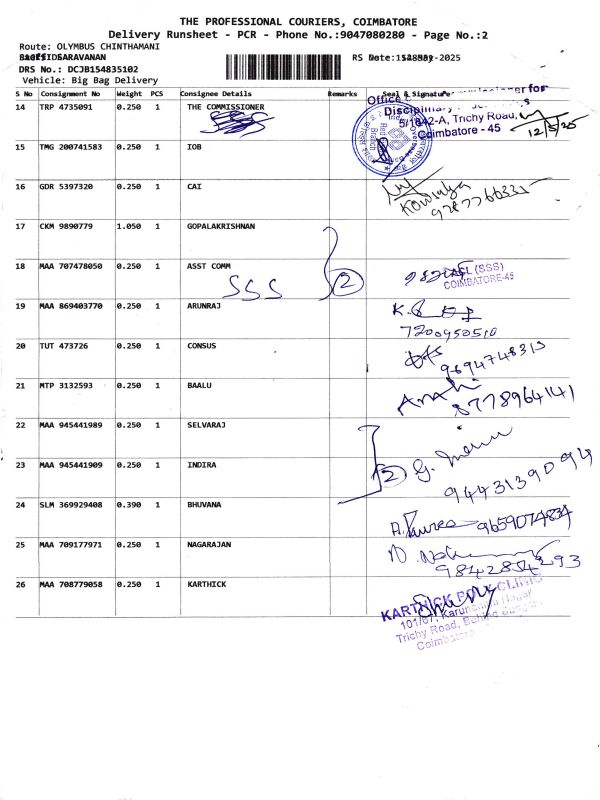 THE PROFESSIONAL COURIERS, COIMBATORE
Delivery Runsheet - PCR - Phone No.:9047080280 - Page No.:2
Route: OLYMBUS CHINTHAMANI
SARAVANAN
RS Date: -2025
DRS No.: DCJB154835102
Vehicle: Big Bag Delivery
S No Consignment No Weight PCS Consignee Details Remarks Seal & Signature
14 TRP 4735091 0.250 1 THE COMMISSIONER
Office
5/1842-A, Trichy Road,
Coimbatore - 45
12/5/25
15 TMG 200741583 0.250 1 IOB
16 GDR 5397320 0.250 1 CAI
17 CKM 9890779 1.050 1 GOPALAKRISHNAN
18 MAA 707478050 0.250 1 ASST COMM
SSS 2
(SSS)
COIMBATORE-45
19 MAA 869403770 0.250 1 ARUNRAJ
7200950510
20 TUT 473726 0.250 1 CONSUS
9694748315
21 MTP 3132593 0.250 1 BAALU
8778964141
22 MAA 945441989 0.250 1 SELVARAJ
23 MAA 945441909 0.250 1 INDIRA
2
9443139094
24 SLM 369929408 0.390 1 BHUVANA
9659074834
25 MAA 709177971 0.250 1 NAGARAJAN
9842854293
26 MAA 708779058 0.250 1 KARTHICK
KARTHICK POLY CLINIC
Trichy Road,
Coimbatore